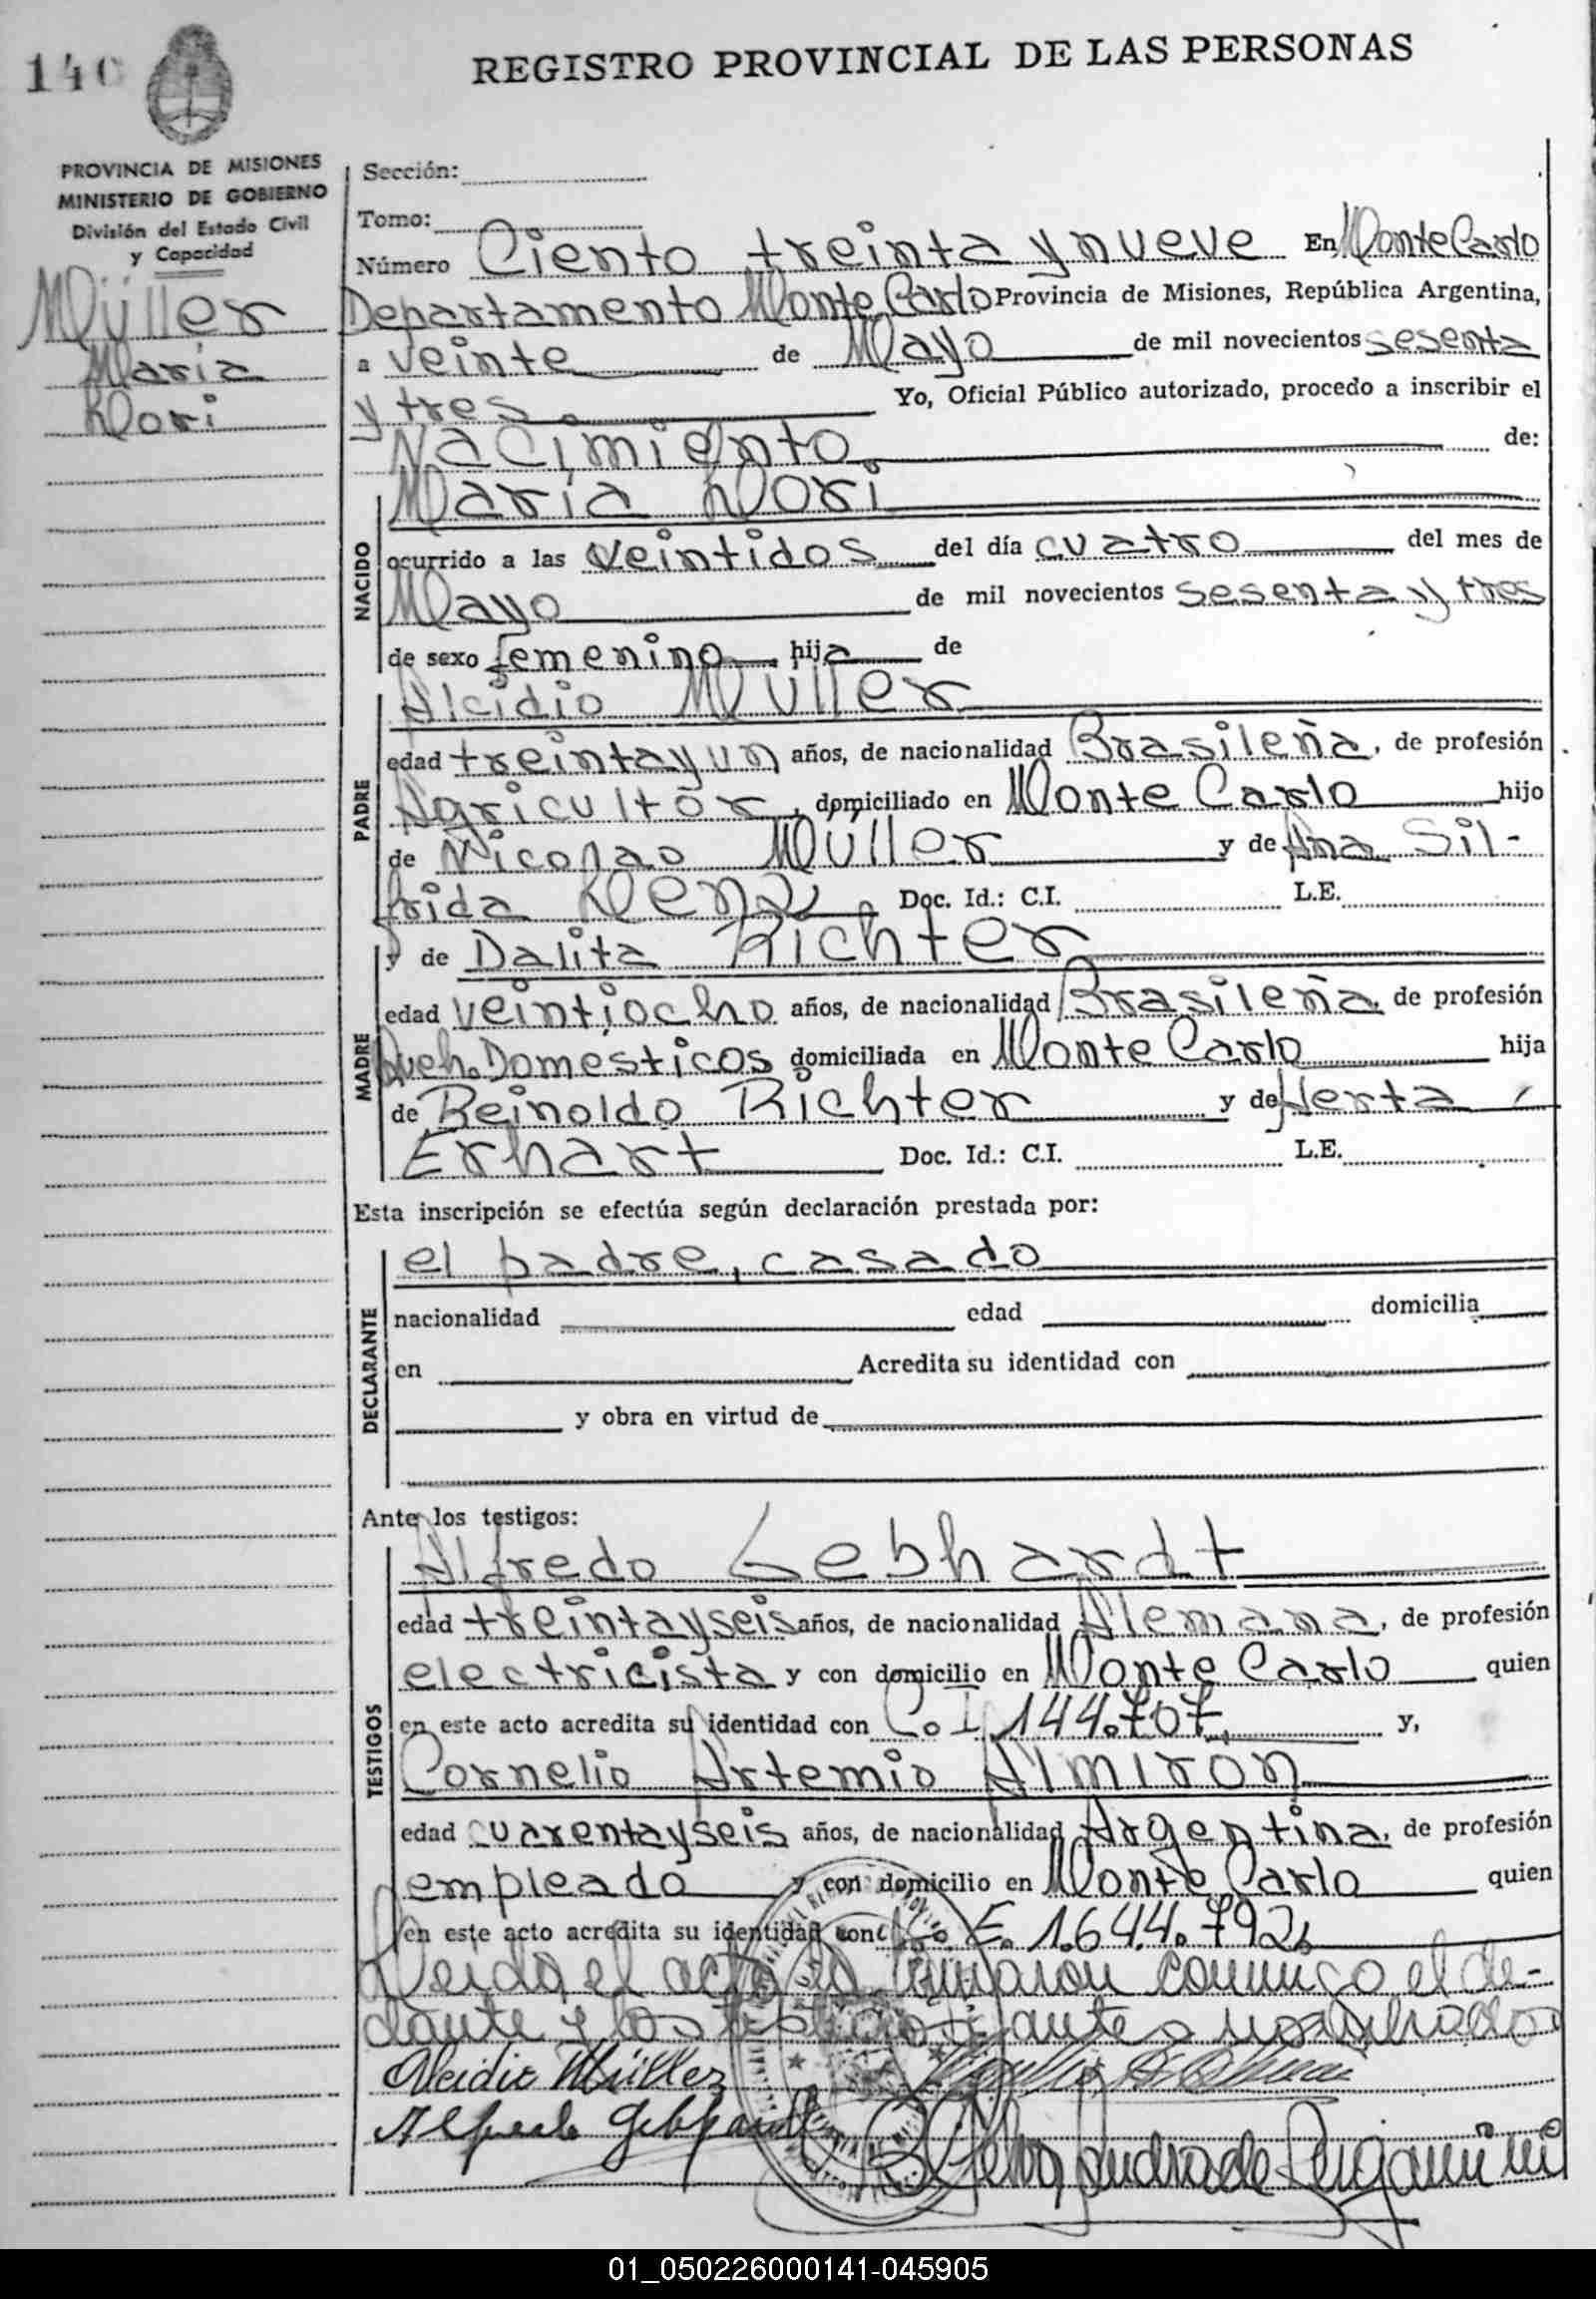 140
REGISTRO PROVINCIAL DE LAS PERSONAS
PROVINCIA DE MISIONES
MINISTERIO DE GOBIERNO
División del Estado Civil
y Capacidad
Müller
María
Dori
Sección:
Tomo:
Número Ciento treinta y nueve En Monte Carlo
Departamento Monte Carlo Provincia de Misiones, República Argentina,
a veinte de Mayo de mil novecientos sesenta
y tres. Yo, Oficial Público autorizado, procedo a inscribir el
Nacimiento de:
NACIDO
María Dori
ocurrido a las veintidos del día cuatro del mes de
Mayo de mil novecientos sesenta y tres
de sexo femenino hija de
PADRE
Alcidio Müller
edad treinta y un años, de nacionalidad Brasileña, de profesión
Agricultor, domiciliado en Monte Carlo hijo
de Nicolao Müller y de Ana Sil-
frida Denz Doc. Id.: C.I. L.E.
MADRE
y de Dalita Richter
edad veintiocho años, de nacionalidad Brasileña, de profesión
Queh. Domésticos domiciliada en Monte Carlo hija
de Reinoldo Richter y de Herta
Erhart Doc. Id.: C.I. L.E.
Esta inscripción se efectúa según declaración prestada por:
DECLARANTE
el padre, casado
nacionalidad edad domicilia
en Acredita su identidad con
y obra en virtud de
Ante los testigos:
TESTIGOS
Alfredo Gebhardt
edad treinta y seis años, de nacionalidad Alemana, de profesión
electricista y con domicilio en Monte Carlo quien
en este acto acredita su identidad con C. I. 144.707, y,
Cornelio Artemio Almirón
edad cuarenta y seis años, de nacionalidad Argentina, de profesión
empleado y con domicilio en Monte Carlo quien
en este acto acredita su identidad con L. E. 1.644.792,
Leida el acta la firmaron conmigo el de-
clarante y los testigos antes nombrados
Alcidio Müller
Alfredo Gebhardt
01_050226000141-045905